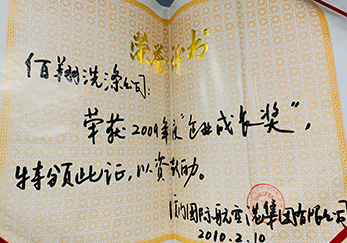 荣誉证书
佰翔洗涤公司：
荣获2009年度“企业成长奖”，
特颁此证，以资鼓励。
厦门国际航空港集团有限公司
2010.2.10